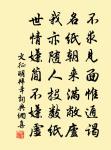 不求見面惟通謁
名紙朝來滿敝廬
我亦隨人投數紙
世情嫌簡不嫌虛
文征明拜年詞典網